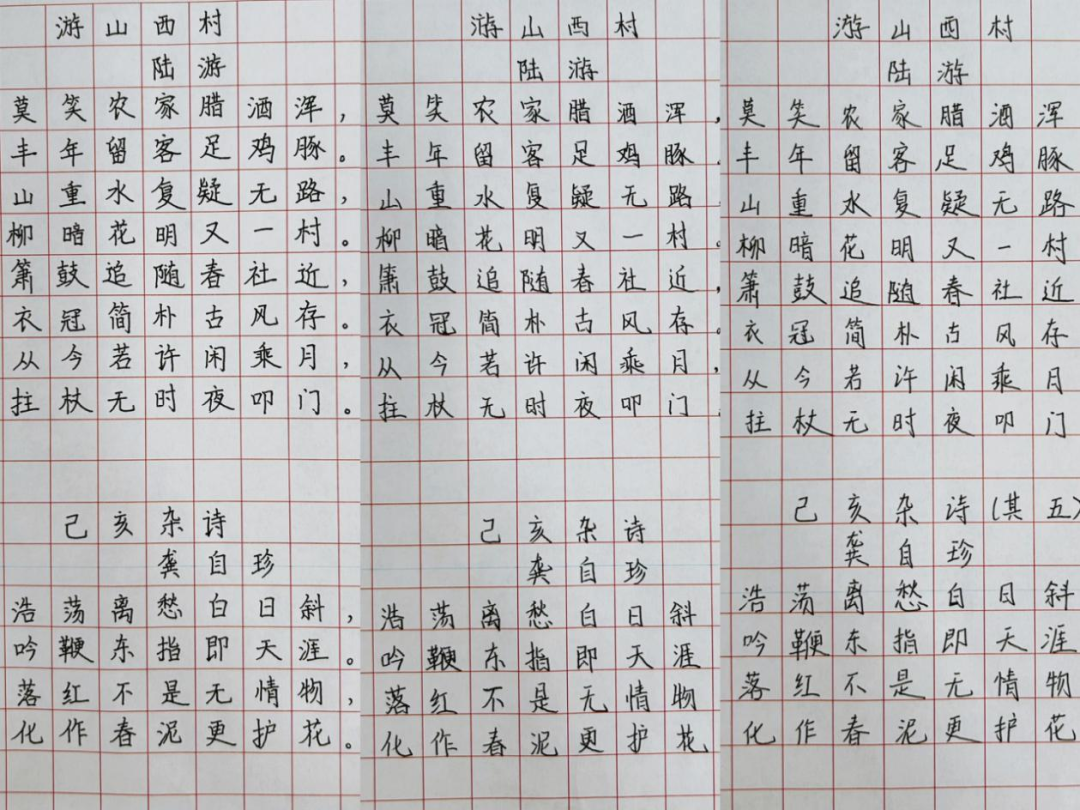 游山西村
陆游
莫笑农家腊酒浑，
丰年留客足鸡豚。
山重水复疑无路，
柳暗花明又一村。
箫鼓追随春社近，
衣冠简朴古风存。
从今若许闲乘月，
拄杖无时夜叩门。
己亥杂诗
龚自珍
浩荡离愁白日斜，
吟鞭东指即天涯。
落红不是无情物，
化作春泥更护花。
游山西村
陆游
莫笑农家腊酒浑，
丰年留客足鸡豚。
山重水复疑无路，
柳暗花明又一村。
箫鼓追随春社近，
衣冠简朴古风存。
从今若许闲乘月，
拄杖无时夜叩门。
己亥杂诗
龚自珍
浩荡离愁白日斜
吟鞭东指即天涯
落红不是无情物
化作春泥更护花
游山西村
陆游
莫笑农家腊酒浑
丰年留客足鸡豚
山重水复疑无路
柳暗花明又一村
箫鼓追随春社近
衣冠简朴古风存
从今若许闲乘月
拄杖无时夜叩门
己亥杂诗(其五)
龚自珍
浩荡离愁白日斜
吟鞭东指即天涯
落红不是无情物
化作春泥更护花